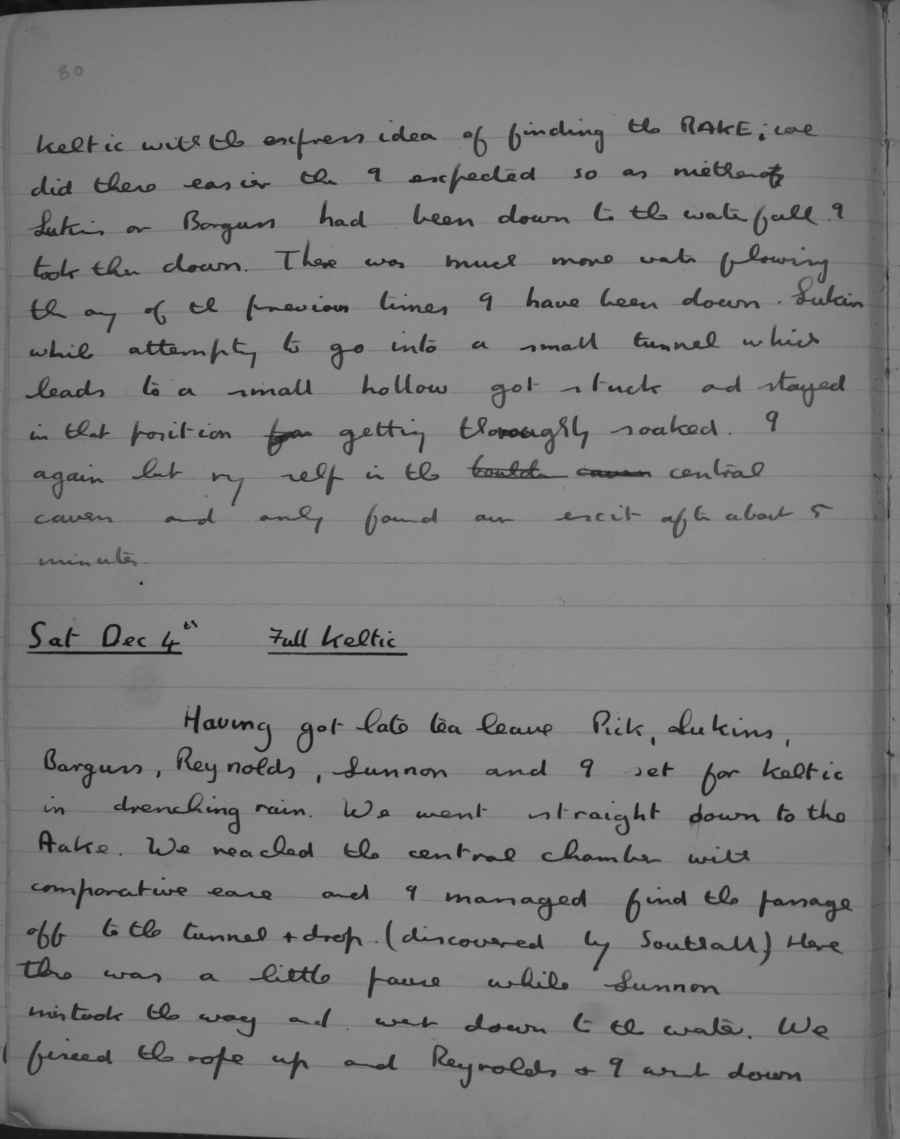 80
Keltic with the express idea of finding the RAKE; we
did there easier tha I expected so as neither of
Lukin or Bargus had been down to the waterfall I
took then down. There was much more water flowing
tha any of the previous times I have been down. Lukin
while attempty to go into a small tunnel which
leads to a small hollow got stuck and stayed
in that position getting thoroughly soaked. I
again lost my self in the central
cavern and only found an exit after about 5
minutes.
Sat Dec 4th Full Keltic
Having got late tea leave Pick, Lukins,
Barguss, Reynolds, Lunnon and I set for Keltic
in drenching rain. We went straight down to the
Rake. We reached the central chamber with
comparative ease and I managed find the passage
off to the tunnel + drop. (discovered by Southall) Here
there was a little pause while Lunnon
mistook the way and went down to the water. We
fixed the rope up and Reynolds + I went down